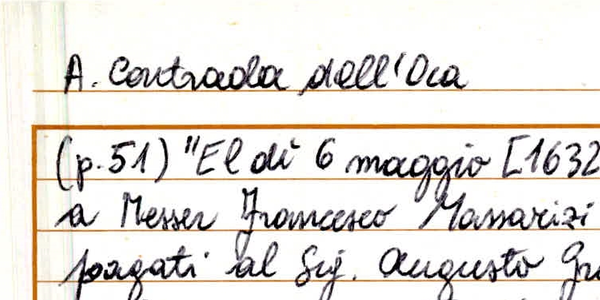 A. Contrada dell'Oca
(p.51) "El dì 6 maggio [1632
a Messer Francesco Massarizi
pagati al Sig. Augusto